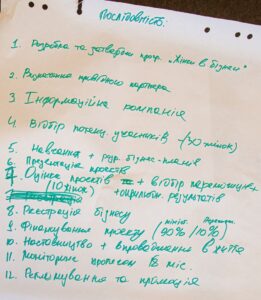 Послідовність:
1. Розробка та затвердж. прогр. „Жінки в бізнесі"
2. Визначення приватного партнера
3 Інформаційна компанія
4 Відбір потенц. учасників (~30 жінок)
5. Навчання + розр. бізнес-планів
6. Презентація проєктів
7. Оцінка проєктів + відбір переможниць
(10 жінок) + оприлюдн. результатів
8. Реєстрація бізнесу
9. Фінансування проєкту (90% / 10%)
10. Наставництво + впровадження в життя
11. Моніторинг 12 міс.
12. Рекламування та промоція